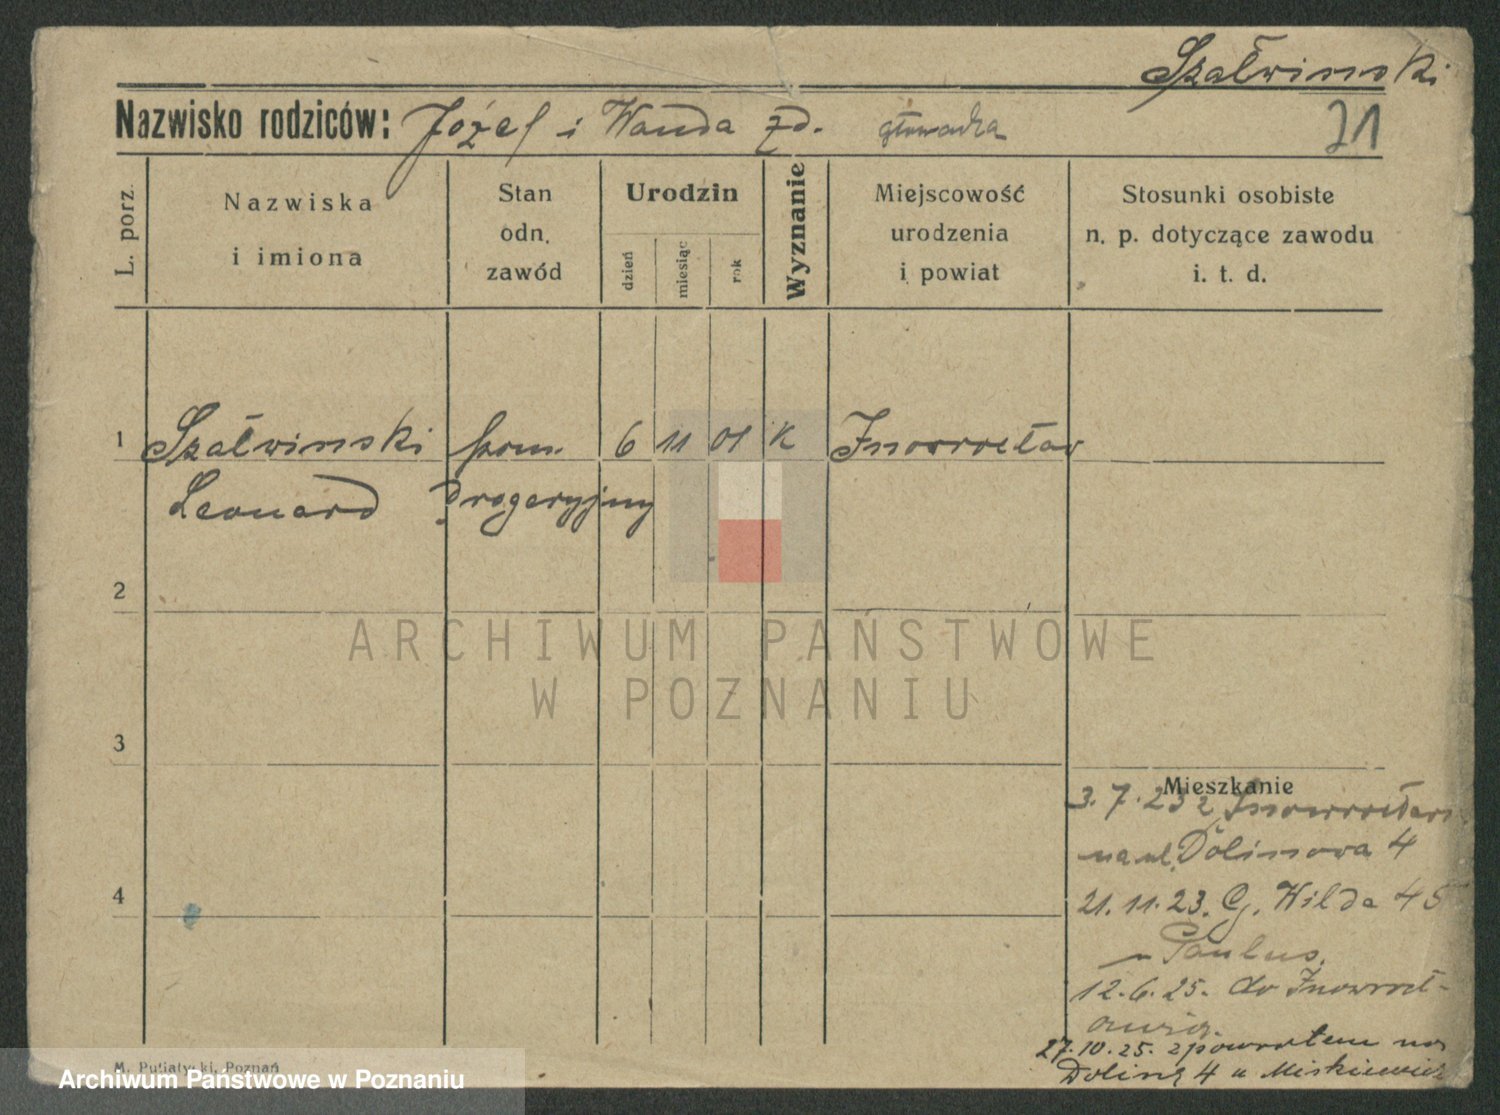 Szałwinski
Nazwisko rodziców: Józef i Wanda zd.
71
L. porz.
Nazwiska
i imiona
Stan
odn.
zawód
Urodzin
dzień
miesiąc
rok
Wyznanie
Miejscowość
urodzenia
i powiat
Stosunki osobiste
n. p. dotyczące zawodu
i. t. d.
1 Szałwinski pom. 6 11 01 K Inowrocław
Leonard Drogeryjny
2
3
4
ARCHIWUM PAŃSTWOWE
W POZNANIU
Mieszkanie
3.7.23 z Inowrocławia
na ul. Dolinowa 4
21.11.23. G. Wilda 45
u Paulus.
12.6.25. do Inowrocł-
awia.
27.10.25. z powrotem na
Dolinę 4 u Miskiewicz
M. Putiatycki, Poznań
Archiwum Państwowe w Poznaniu